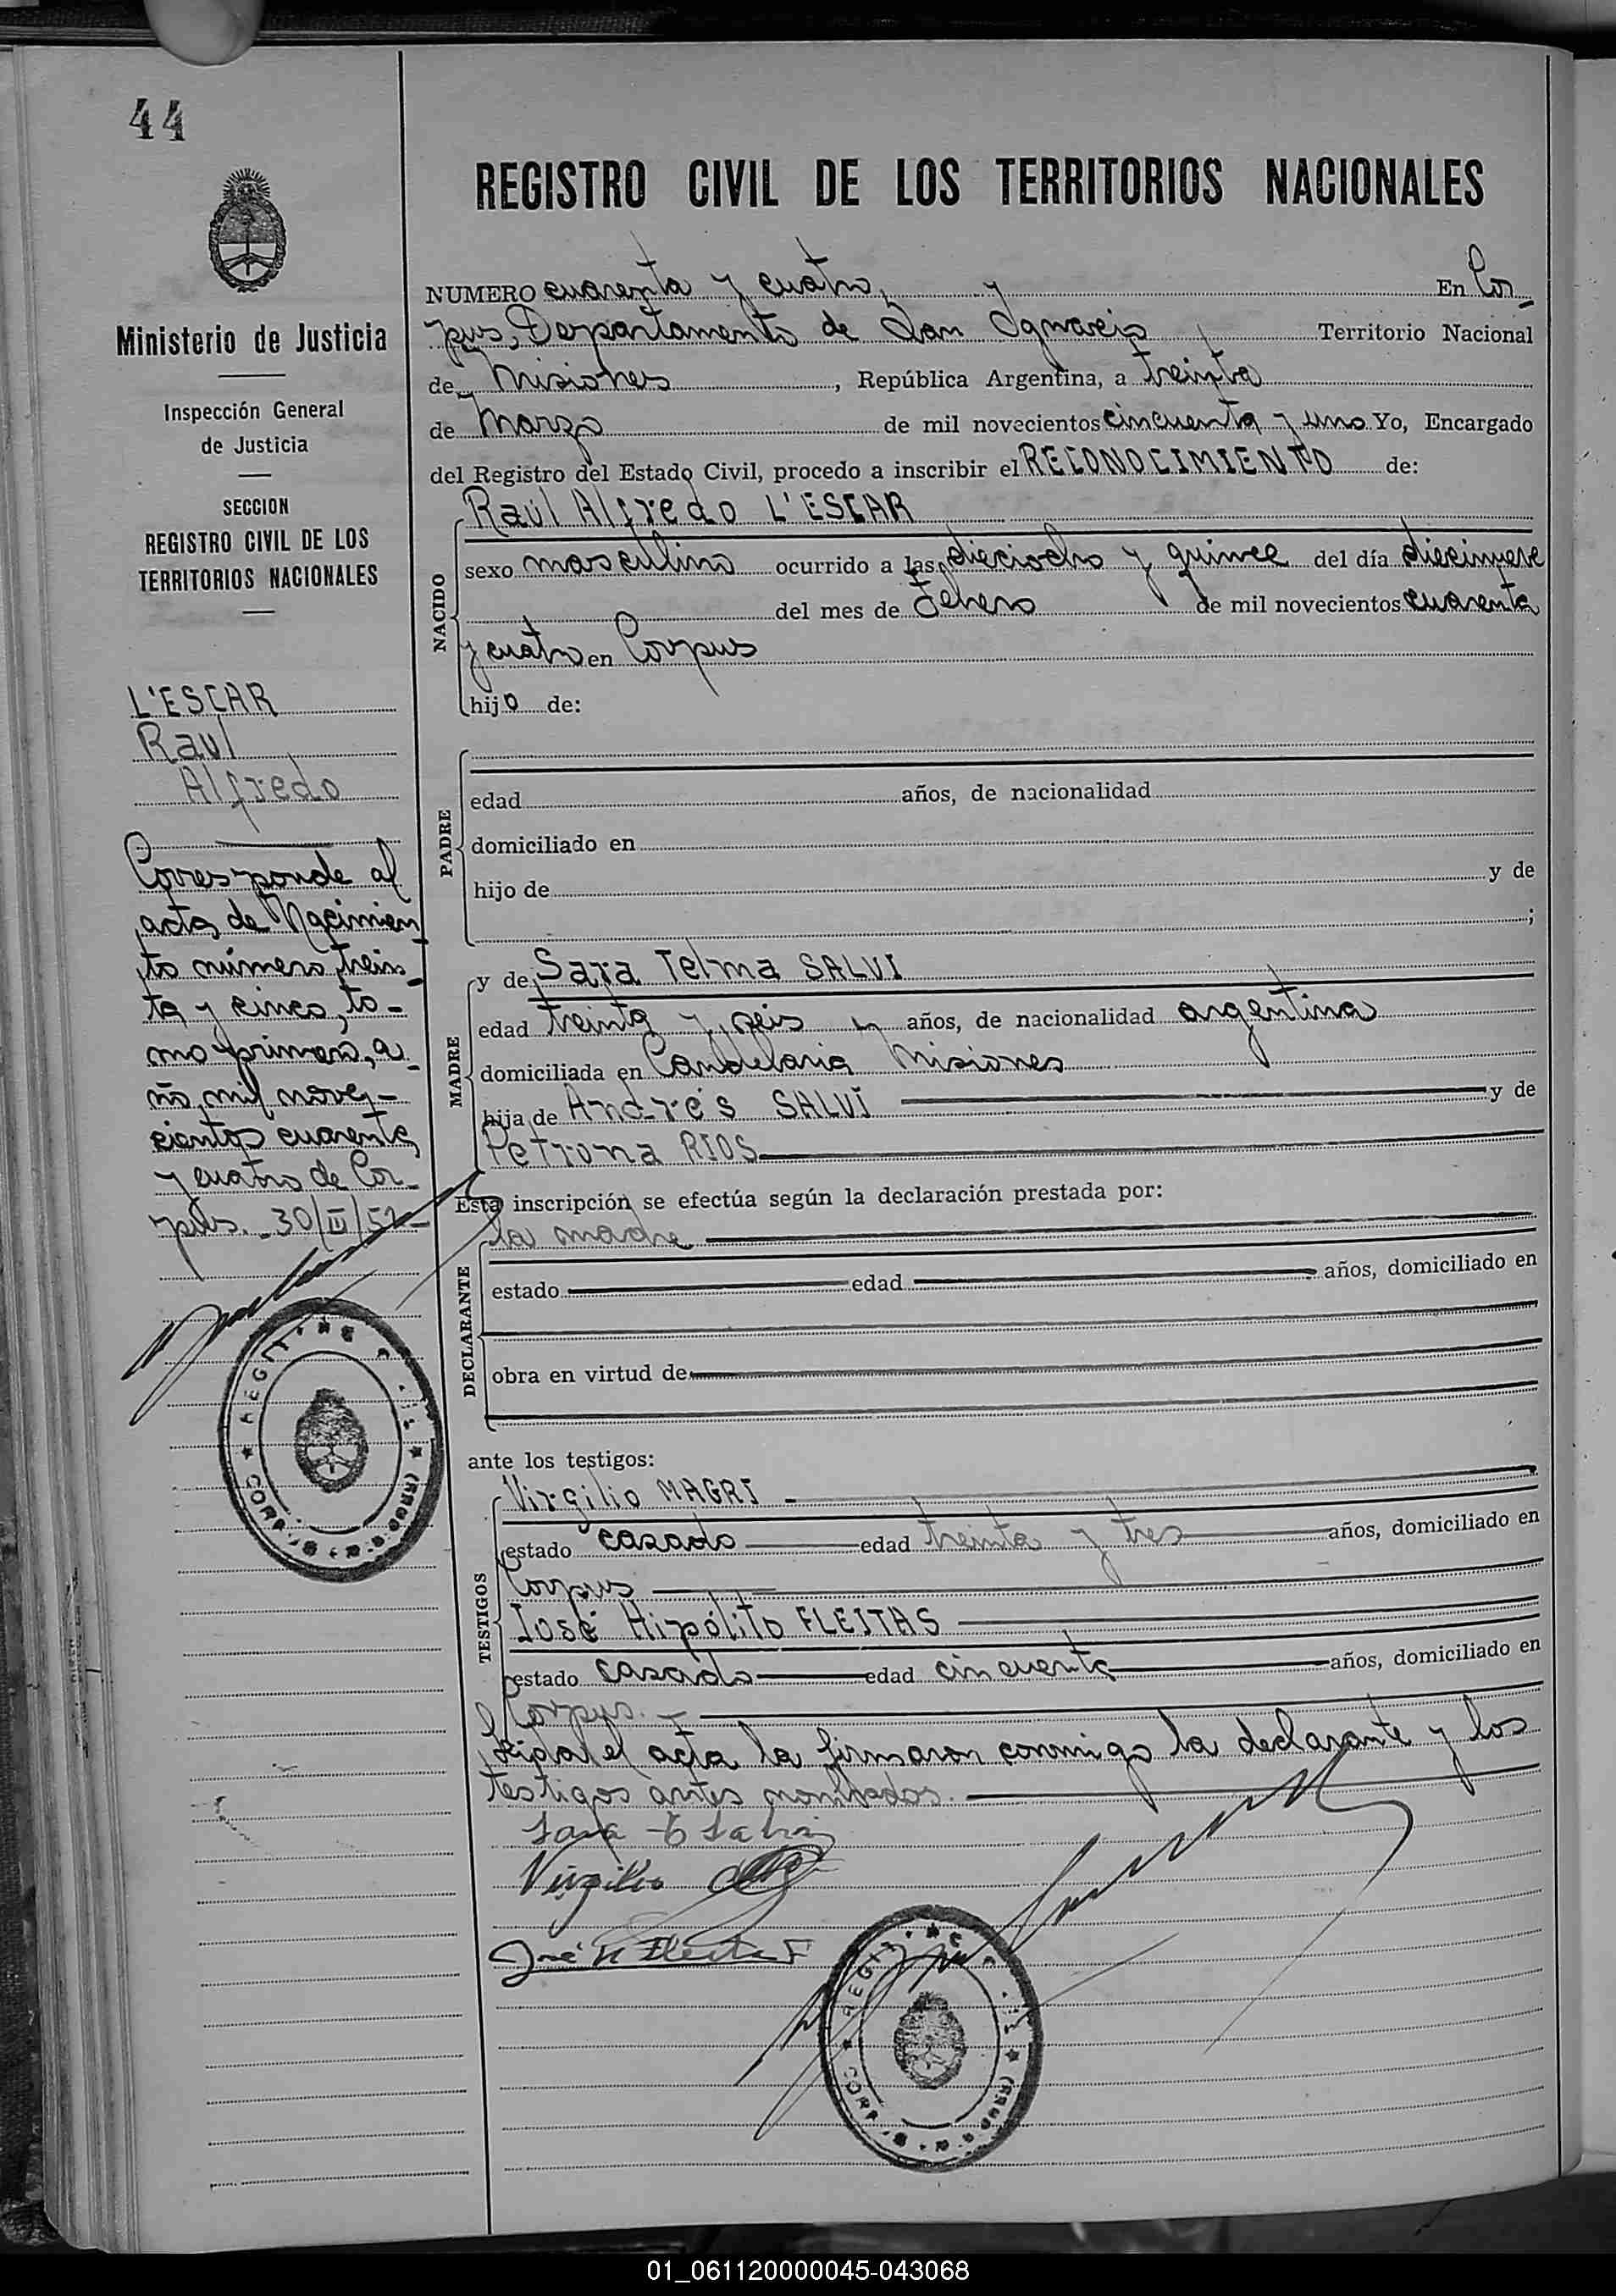 44
Ministerio de Justicia
Inspección General
de Justicia
SECCION
REGISTRO CIVIL DE LOS
TERRITORIOS NACIONALES
L'ESCAR
Raul
Alfredo
Corresponde al
acta de Nacimien
to número trein-
ta y cinco, to-
mo primero, a-
ño mil nove-
cientos cuarenta
y cuatro de Cor-
pus.- 30/III/51-
REGISTRO CIVIL DE LOS TERRITORIOS NACIONALES
NUMERO cuarenta y cuatro, y En Cor-
pus, Departamento de San Ignacio Territorio Nacional
de Misiones, República Argentina, a treinta
de Marzo de mil novecientos cincuenta y uno Yo, Encargado
del Registro del Estado Civil, procedo a inscribir el RECONOCIMIENTO de:
NACIDO
Raúl Alfredo L'ESCAR
sexo masculino ocurrido a las dieciocho y quince del día diecinueve
del mes de Febrero de mil novecientos cuarenta
y cuatro en Corpus
hijo de:
PADRE
edad años, de nacionalidad
domiciliado en
hijo de y de
;
MADRE
y de Sara Telma SALVI
edad treinta y seis años, de nacionalidad argentina
domiciliada en Candelaria Misiones
hija de Andrés SALVI y de
Petrona RIOS
Esta inscripción se efectúa según la declaración prestada por:
DECLARANTE
la madre
estado edad años, domiciliado en
obra en virtud de
ante los testigos:
TESTIGOS
Virgilio MAGRI
estado casado edad treinta y tres años, domiciliado en
Corpus
José Hipólito FLEITAS
estado casado edad cincuenta años, domiciliado en
Corpus.
Leida el acta la firmaron conmigo la declarante y los
testigos antes nombrados.
Sara T Salvi
Virgilio
José H Fleitas
01_061120000045-043068